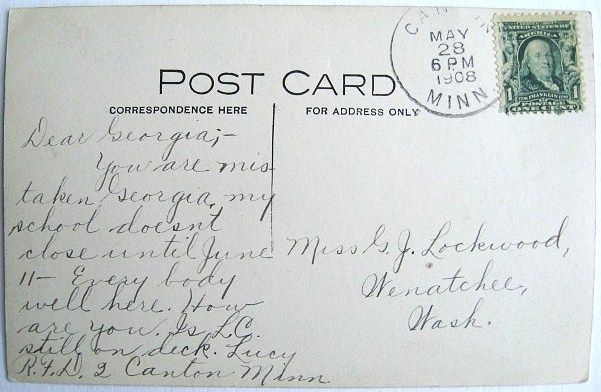 CANTON
MAY
28
6 PM
1908
MINN.
UNITED STATES OF
AMERICA
1 1
FRANKLIN
POSTAGE
ONE CENT
POST CARD
CORRESPONDENCE HERE
FOR ADDRESS ONLY
Dear Georgia;-
You are mis
taken Georgia, my
school doesn't
close until June
11- Every body
well here. How
are you. Is L.C.
still on deck. Lucy
R.F.D. 2 Canton Minn
Miss G. J. Lockwood,
Wenatchee,
Wash.